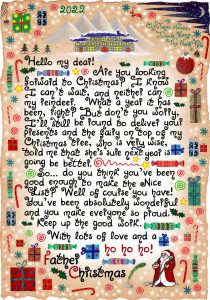 2022
Hello my dear!
Are you looking
forward to Christmas? I know
I can't wait, and neither can
my reindeer. What a year it has
been, right? But don't you worry,
I'll still be found to deliver your
presents and the fairy on top of my
Christmas tree, who is very wise,
told me that she's sure next year is
going to be better.
So... do you think you've been
good enough to make the Nice
List? Well of course you have!
You've been absolutely wonderful
and you make everyone so proud.
Keep up the good work.
With lots of love and a
ho ho ho!
Father
Christmas